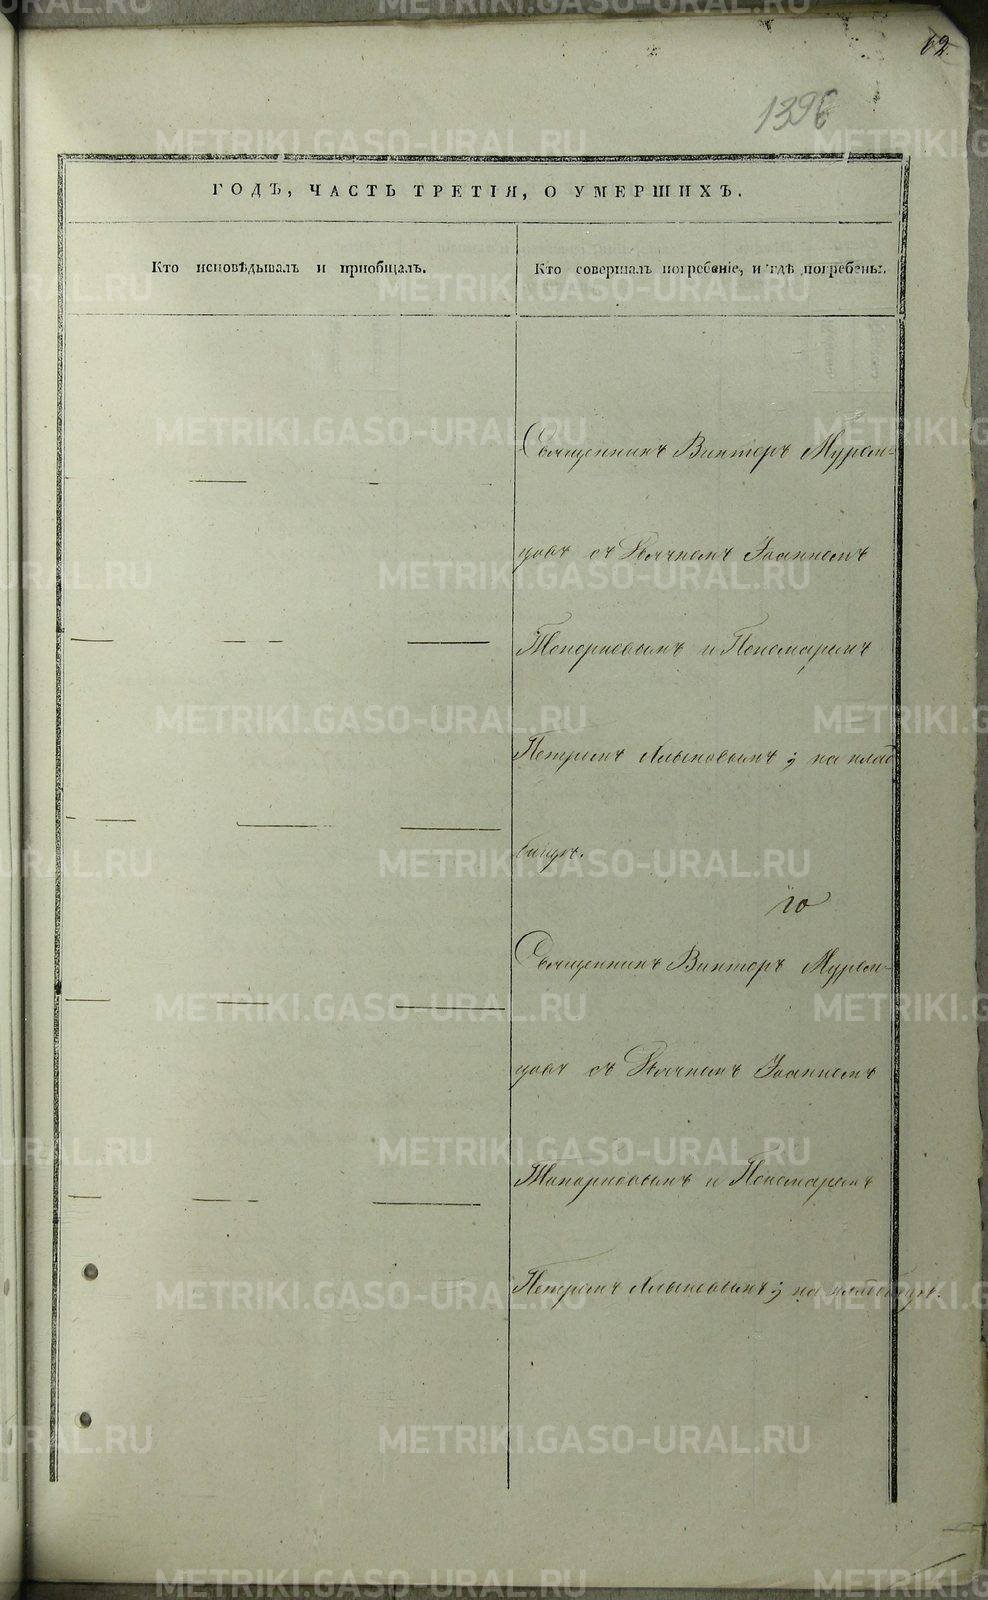 62
1396
ГОДЪ, ЧАСТЬ ТРЕТІЯ, О УМЕРШИХЪ.
Кто исповѣдывалъ и приобщалъ.
Кто совершалъ погребеніе, и гдѣ погребены.
Священникъ Викторъ Муром-
цовъ съ Дьячкомъ Іоанномъ
Топорковымъ и Пономаремъ
Петромъ Хлыновымъ; на клад
бищѣ.
Священникъ Викторъ Муром-
цовъ съ Дьячкомъ Іоанномъ
Топорковымъ и Пономаремъ
Петромъ Хлыновымъ; на кладбищѣ.
METRIKI.GASO-URAL.RU